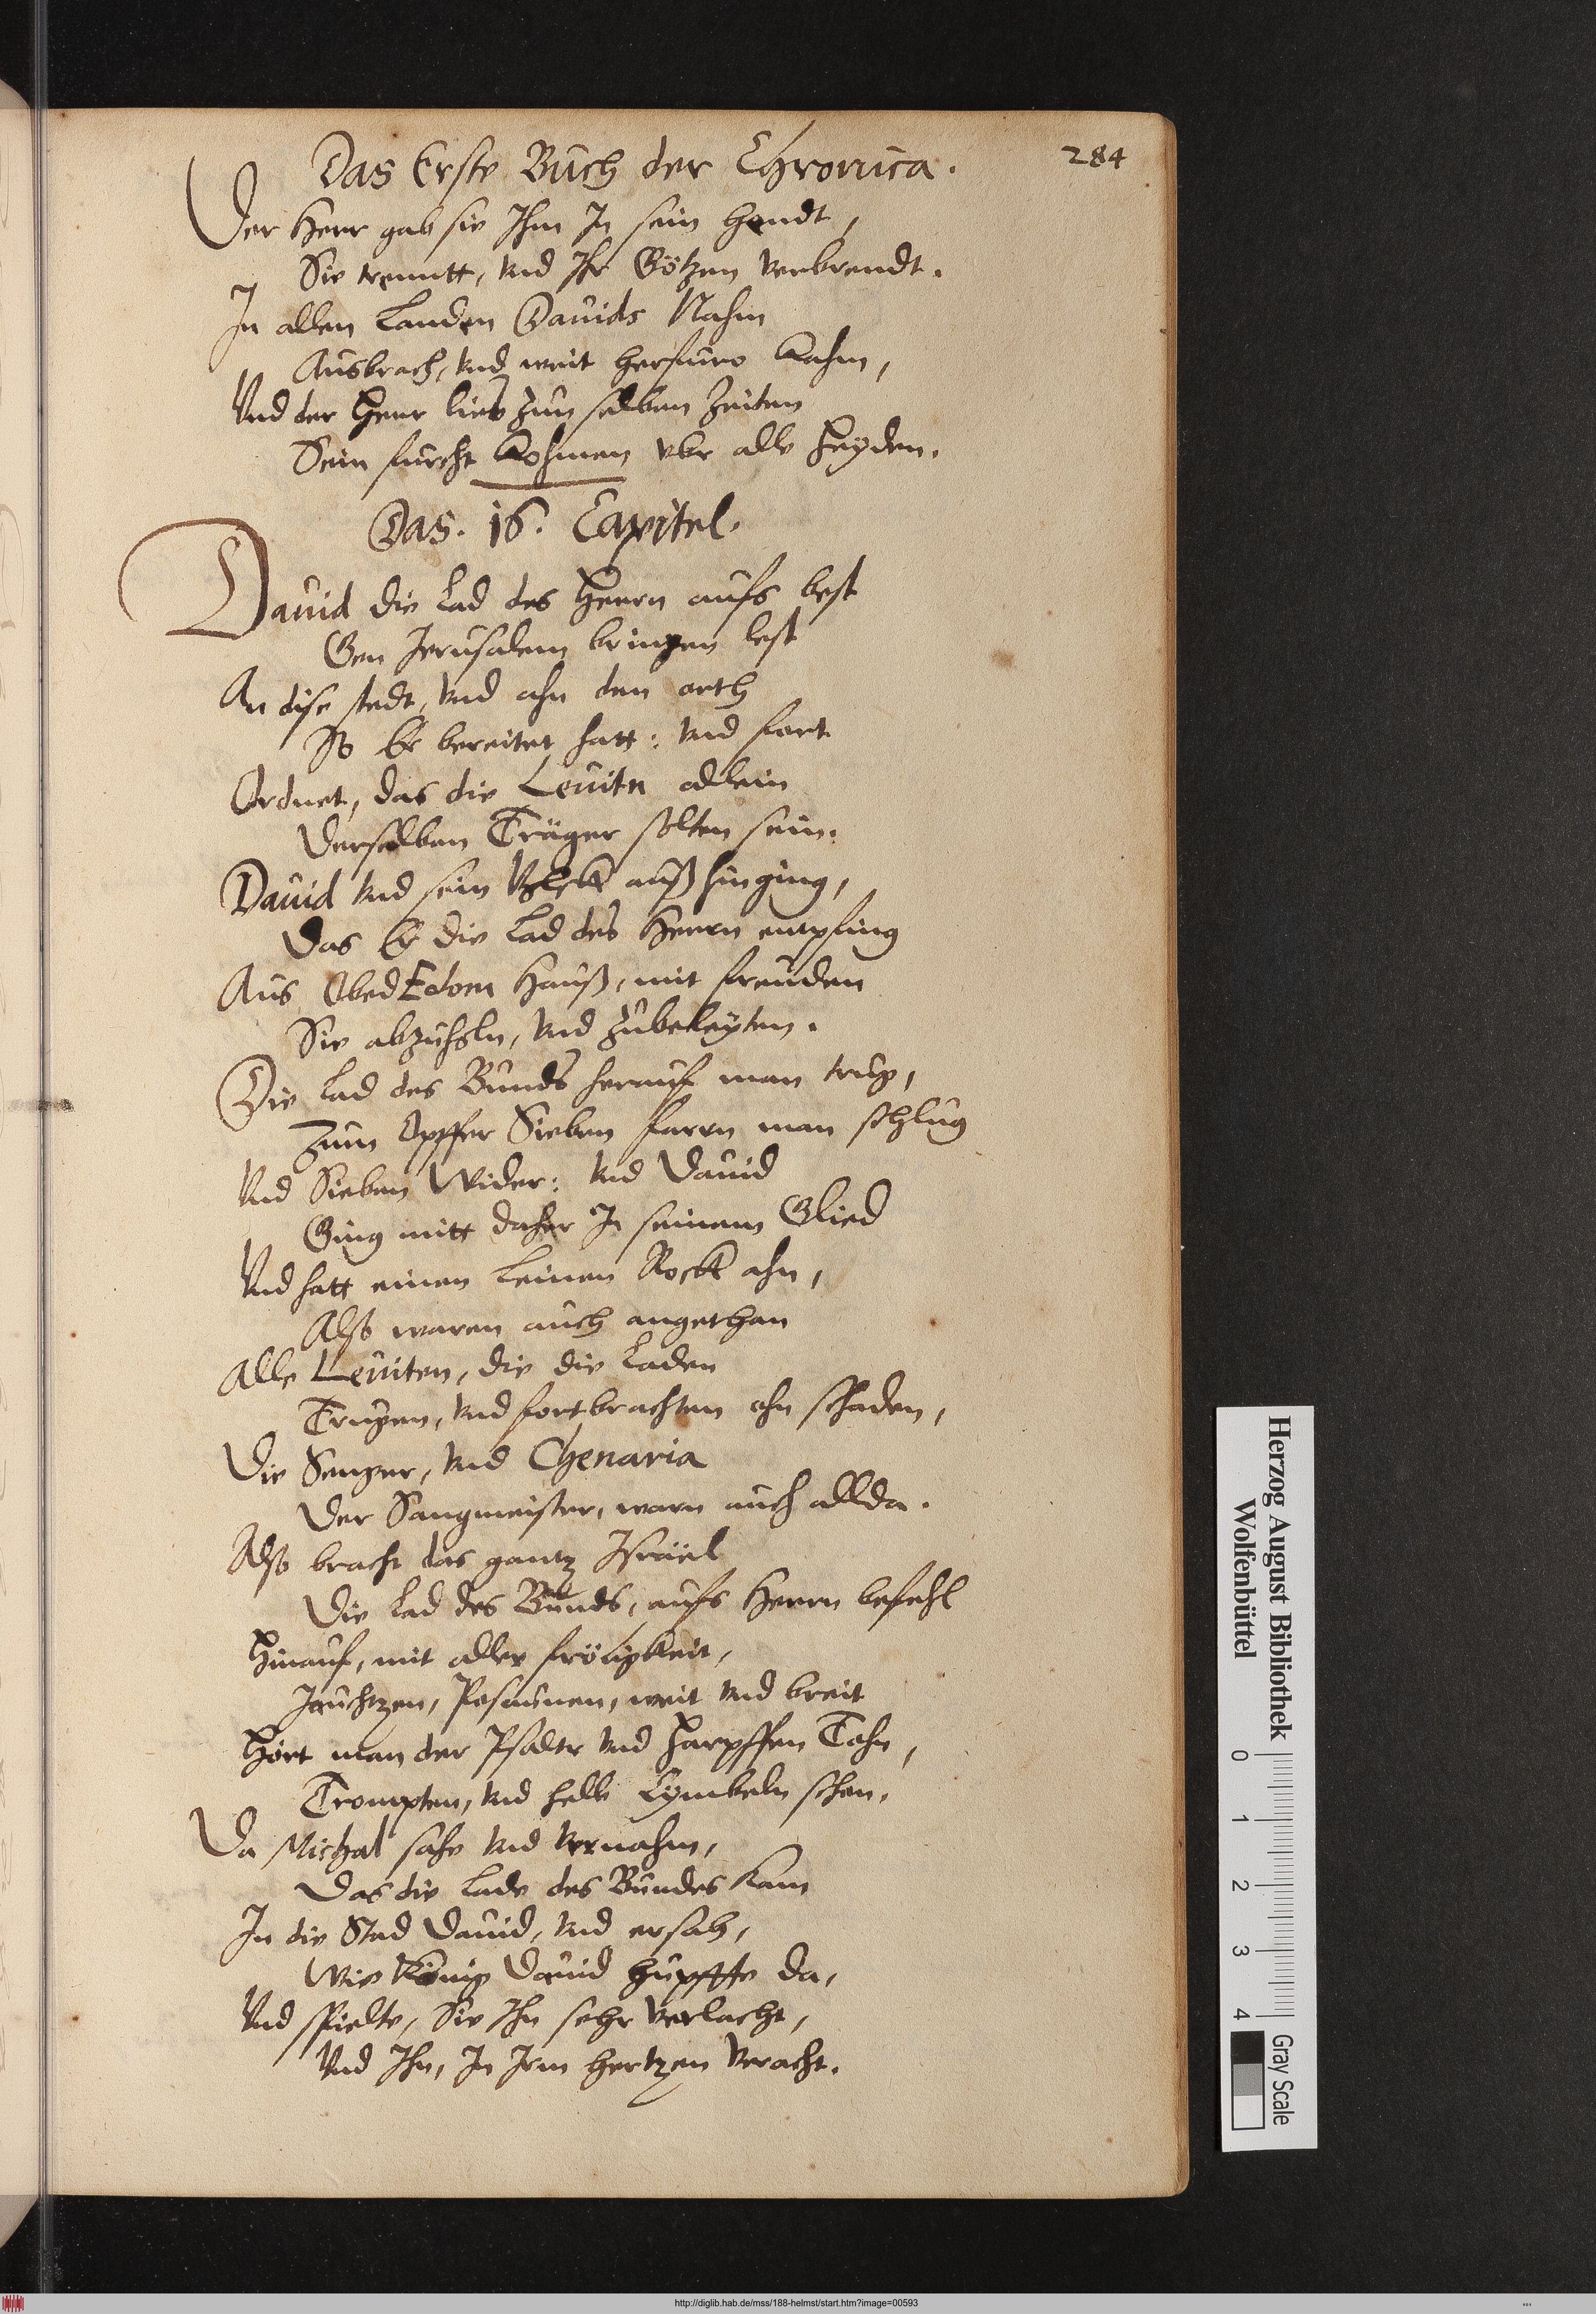 Das Erste Buch der Chronica.
284
Der Herr gab sie Ihm In sein handt,
Sie trennt, vnd Ihr Götzen verbrendt.
In allen Landen Dauids Nahm
Ausbrach, vnd weit herfuro kahm,
Vnd der Herr lies zun selben Zeiten
Sein furcht kohmen vbr alle Heyden.
Das. 16. Capitel.
Dauid die Lad des Herrn aufs best
Gen Jerusalem bringen lest
An dise stedt, vnd ahn den orth
So Er bereitet hatt: vnd fort
Ordnet, das die Leuitn allein
Derselben Träger solten sein.
Dauid vnd sein Volck auß hinging,
Das Er die Lad des Herrn entpfing
Aus ObedEdom Hauß, mit freuden
Sie abzuholn, vnd zubeleyten.
Die Lad des Bunds herauf man trug,
Zum Opffer Sieben farrn man schlug
Vnd Sieben Wider: vnd Dauid
Ging mitt daher In seinem Glied
Vnd hatt einen Leinen Rock ahn,
Also waren auch angethan
Alle Leuiten, die die Laden
Trugen, vnd fortbrachten ohn schaden,
Die Senger, vnd Chenaria
Der Sangmeister, warn auch allda.
Also bracht das gantz Israël
Die Lad des Bunds, aufs Herrn befehl
Hinauf, mit aller fröligkeit,
Jauchtzen, Posaunen, weit vnd breit
Hört man der Psaltr vnd Harpffen Tohn,
Trompten, vnd helle Cymbeln schon.
Da Michal sahe vnd vernahm,
Das die Lade des Bundes kam
In die Stad Dauid, vnd ersah,
Wie König Dauid hupffte da,
Vnd spielte, Sie Ihn sehr verlacht,
Vnd Ihn, In Irm hertzen veracht.
Herzog August Bibliothek
Wolfenbüttel
0 1 2 3 4
Gray Scale
http://diglib.hab.de/mss/188-helmst/start.htm?image=00593